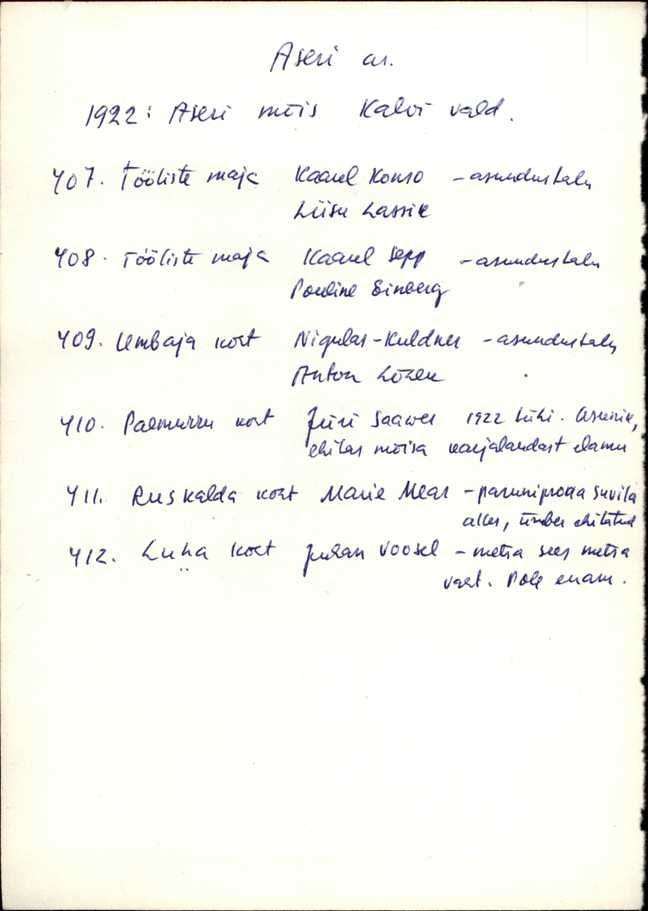 Aseri as.
1922: Aseri mõis Kalvi vald.
407. Tööliste maja Kaarel Konso - asundustalu
Liisu Lassik
408. Tööliste maja Kaarel Sepp - asundustalu
Pauline Einberg
409. Umbaja kort Nigulas Kuldner - asundustalu
Anton
410. kort Jüri Saawer 1922 tühi. Asunik,
ehitas mõisa karjalaudast elamu
411. Ruskalda kort Marie Mear - paruniproua suvila
alles, ümber ehitatud
412. Luha kort Juhan Voosel - metsa sees metsa
vaht. Pole enam.